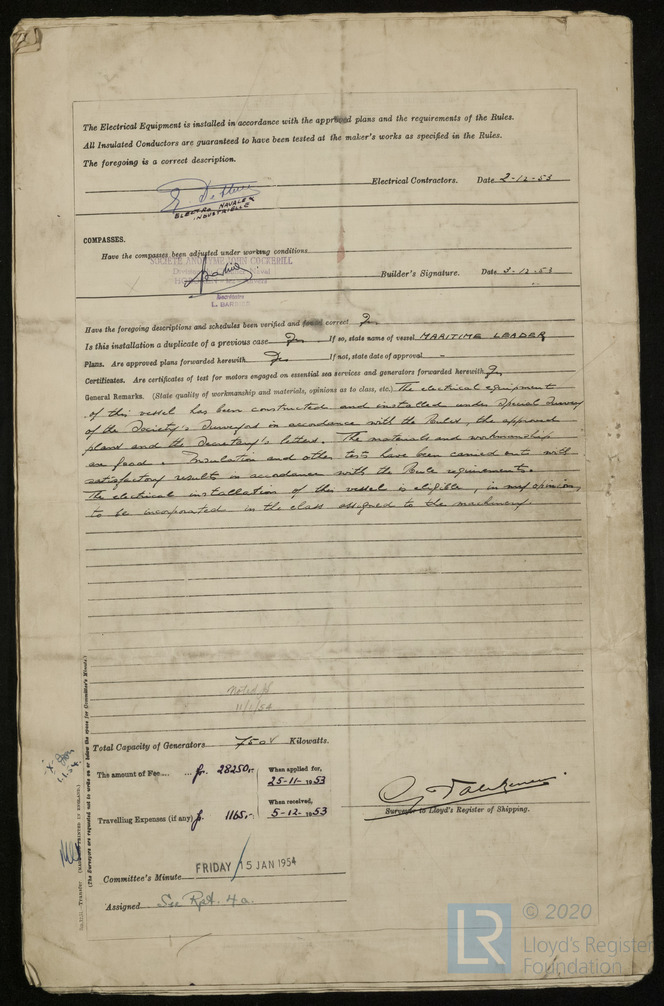 The Electrical Equipment is installed in accordance with the approved plans and the requirements of the Rules.
All Insulated Conductors are guaranteed to have been tested at the maker's works as specified in the Rules.
The foregoing is a correct description.
Electrical Contractors. Date 2-12-53
ELECTRO NAVALE &
INDUSTRIELLE
COMPASSES.
Have the compasses been adjusted under working conditions
SOCIÉTÉ ANONYME JOHN COCKERILL
Builder's Signature. Date 3-12-53
Secrétaire
Have the foregoing descriptions and schedules been verified and found correct Yes
Is this installation a duplicate of a previous case Yes If so, state name of vessel MARITIME LEADER
Plans. Are approved plans forwarded herewith Yes If not, state date of approval -
Certificates. Are certificates of test for motors engaged on essential sea services and generators forwarded herewith Yes
General Remarks. (State quality of workmanship and materials, opinions as to class, etc.) The electrical equipment
of this vessel has been constructed and installed under Special Survey
of the Society's Surveyors in accordance with the Rules, the approved
plans and the Secretary's letters. The materials and workmanship
are good. Insulation and other tests have been carried out with
satisfactory results in accordance with the Rule requirements.
The electrical installation of this vessel is eligible, in my opinion,
to be incorporated in the class assigned to the machinery.
Noted
11/1/54
Total Capacity of Generators 750 Kilowatts.
The amount of Fee ... fr. 28250,- When applied for, 25-11-1953
Travelling Expenses (if any) fr. 1165,- When received, 5-12-1953
Surveyor to Lloyd's Register of Shipping.
Committee's Minute FRIDAY 15 JAN 1954
Assigned See Rpt. 4a.
(The Surveyors are requested not to write on or below the space for Committee's Minute.)
LR © 2020
Lloyd's Register
Foundation